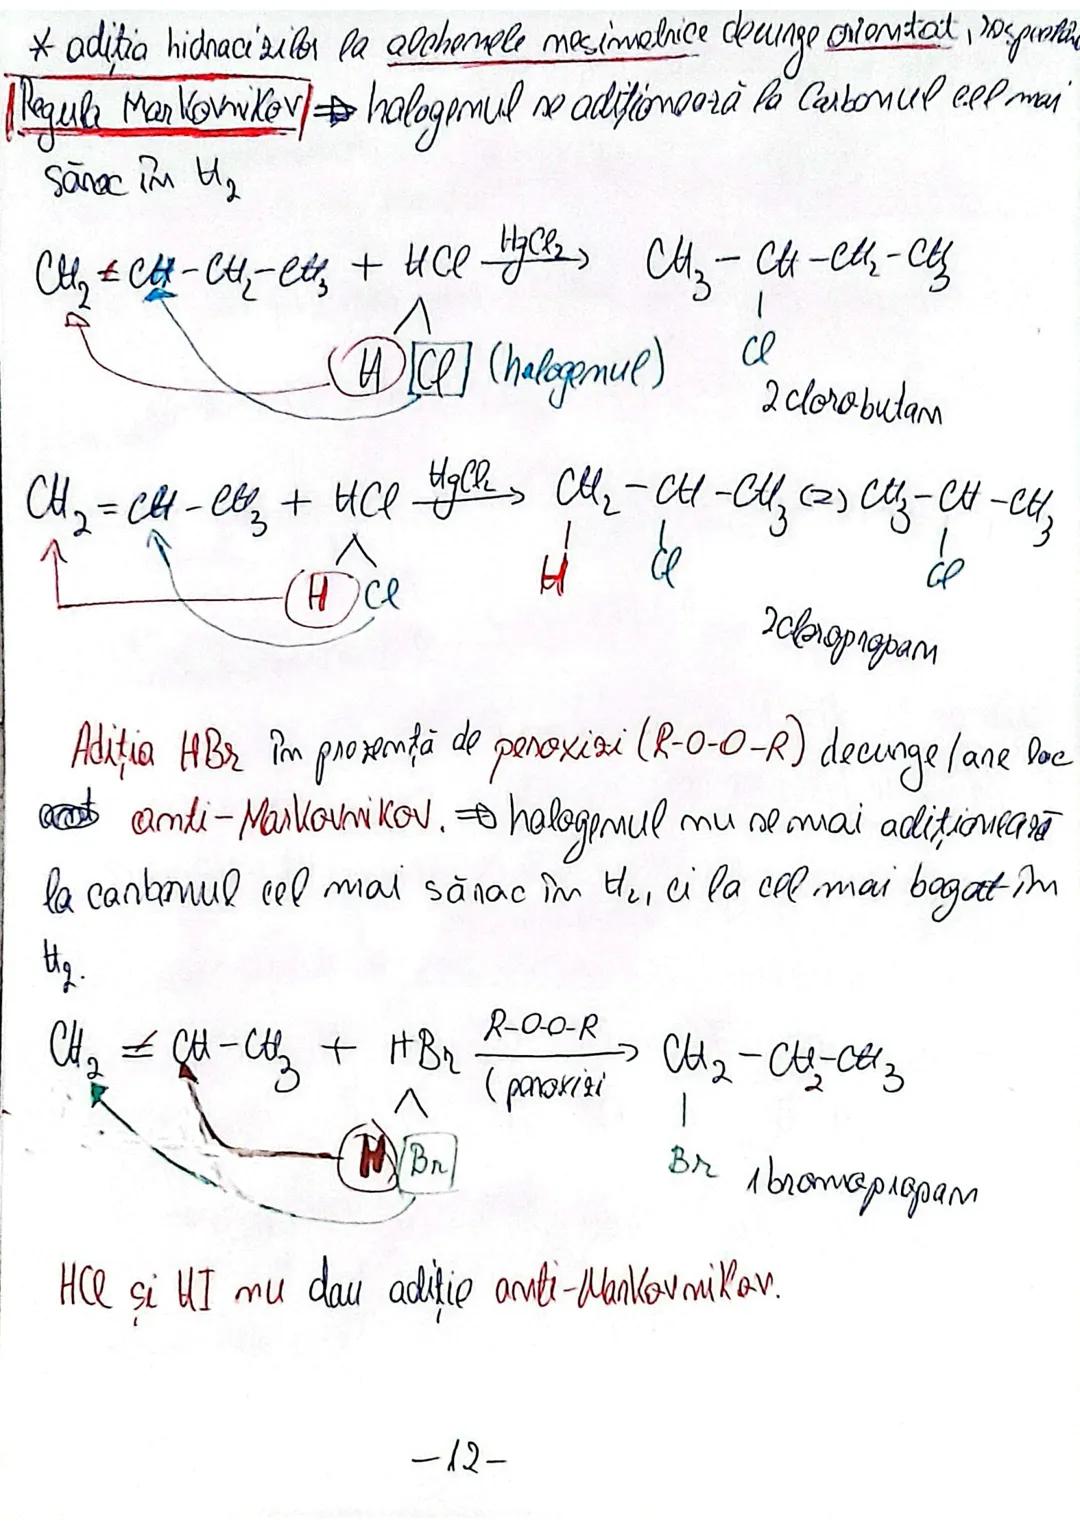 * adiția hidracizilor la alchenele nesimetrice decurge orientat, respectând
Regula Markovnikov => halogenul se adiționează la Carbonul cel mai
sărac în H2
CH2 = CH - CH2 - CH3 + HCl HgCl2 → CH3 - CH - CH2 - CH3
H Cl (halogenul) Cl
2 clorobutan
CH2 = CH - CH3 + HCl HgCl2 → CH2 - CH - CH3 (=) CH3 - CH - CH3
H Cl H Cl Cl
2 cloropropan
Adiția HBr în prezență de peroxizi (R-O-O-R) decurge/are loc
anti-Markovnikov. => halogenul nu se mai adiționează
la carbonul cel mai sărac în H2, ci la cel mai bogat în
H2.
CH2 = CH - CH3 + HBr R-O-O-R (peroxizi → CH2 - CH2 - CH3
H Br Br 1 bromopropan
HCl și HI nu dau adiție anti-Markovnikov.
-12-